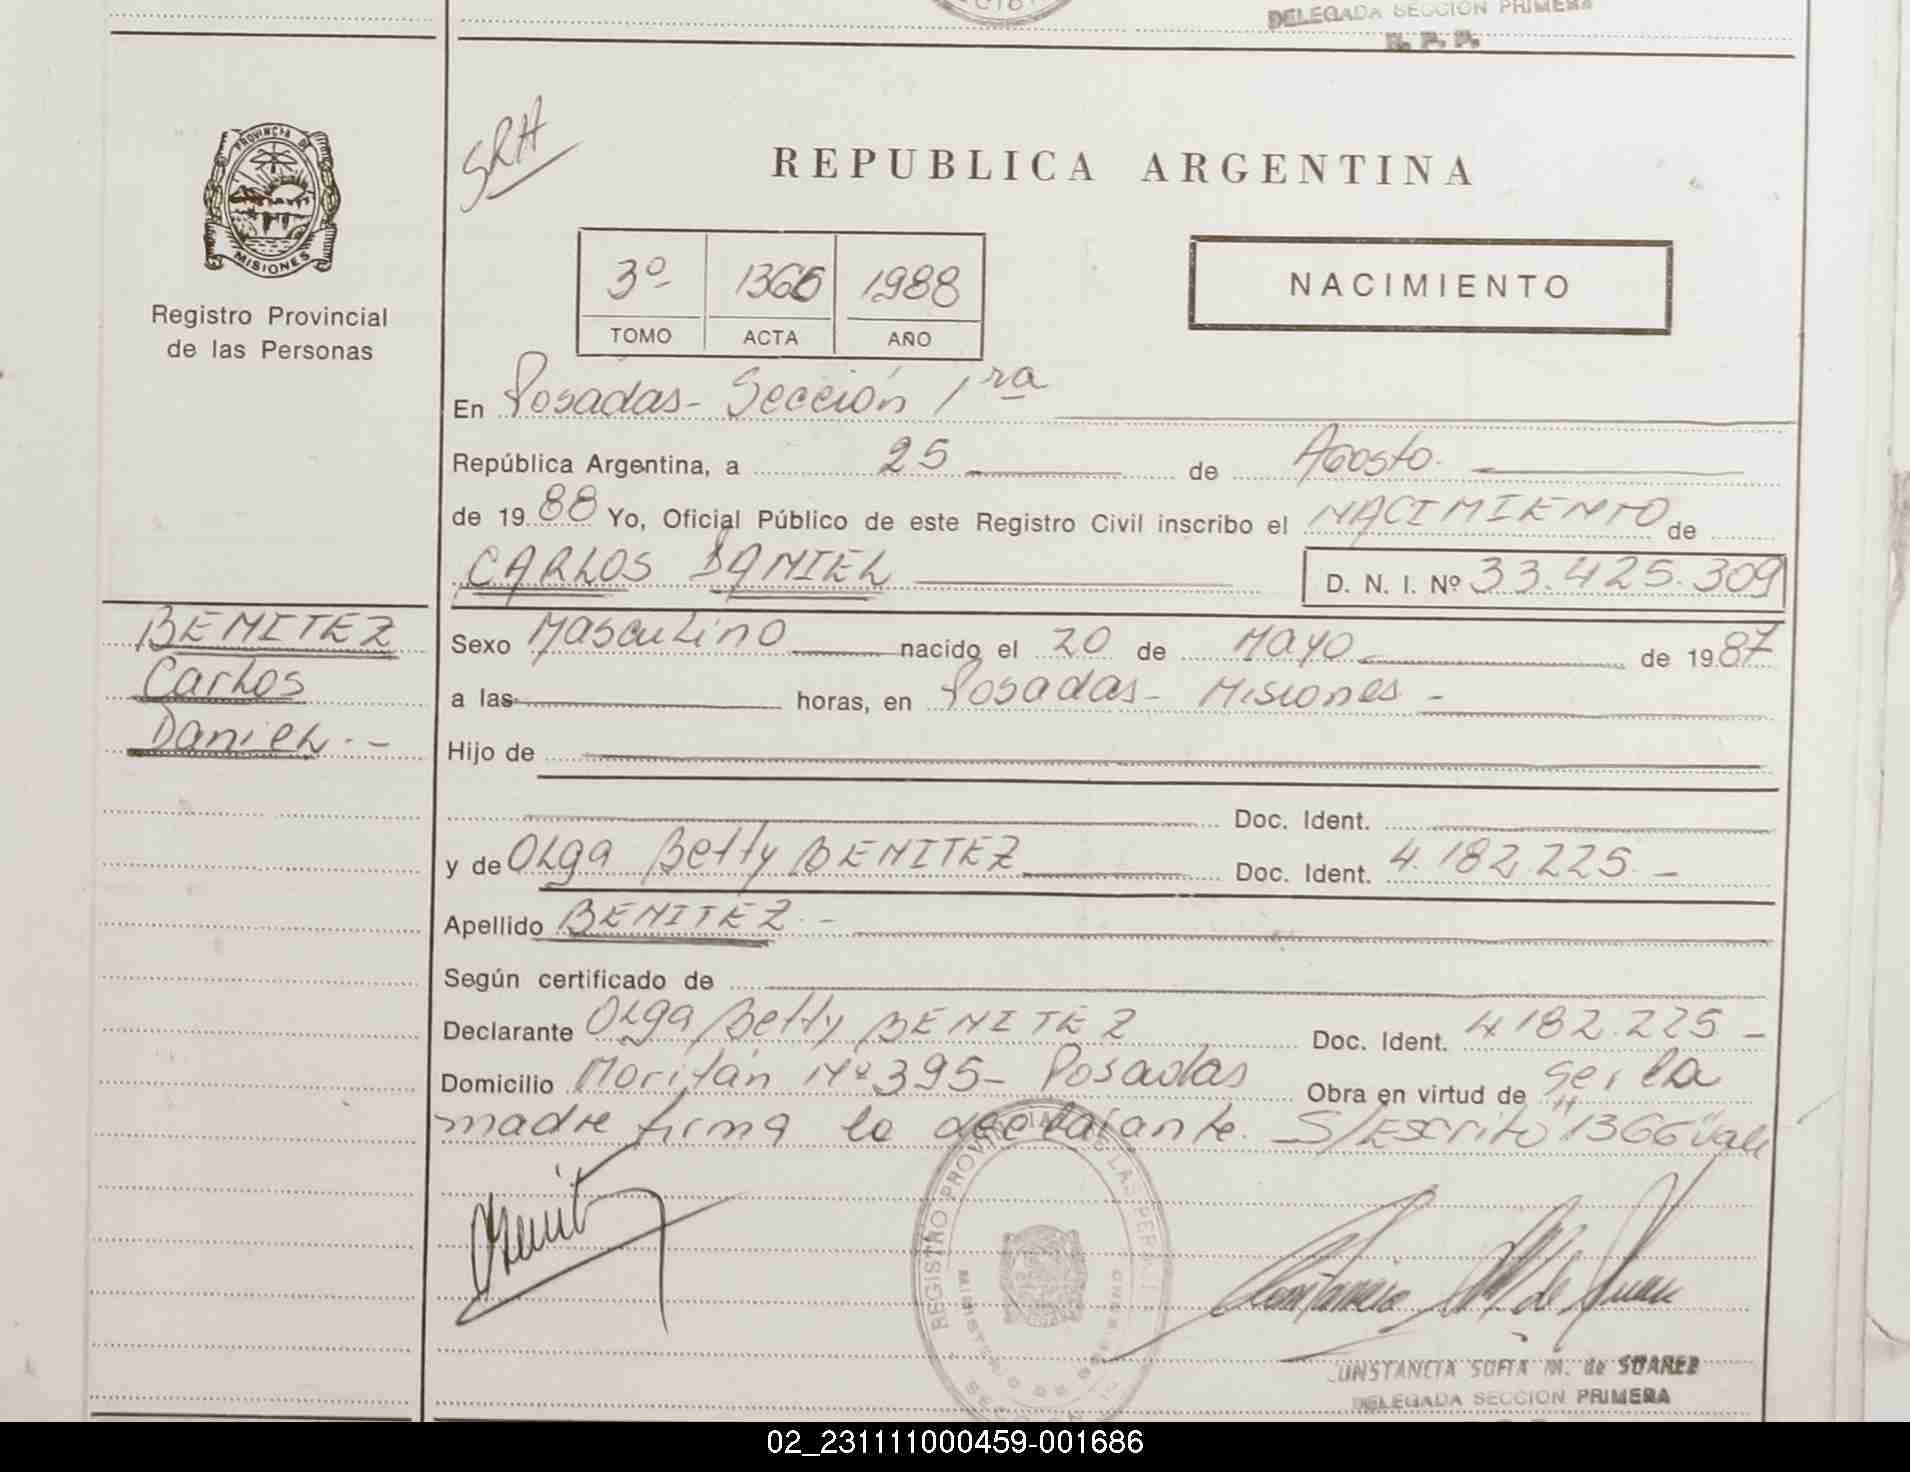 DELEGADA SECCION PRIMERA
R. P. P.
PROVINCIA DE
MISIONES
Registro Provincial
de las Personas
SRH
REPUBLICA ARGENTINA
3º 1366 1988
TOMO ACTA AÑO
NACIMIENTO
En Posadas - Sección 1ra
República Argentina, a 25 de Agosto.
de 1988 Yo, Oficial Público de este Registro Civil inscribo el NACIMIENTO de
CARLOS DANIEL D. N. I. Nº 33.425.309
BENITEZ
Carlos
Daniel.-
Sexo Masculino nacido el 20 de Mayo de 1987
a las horas, en Posadas - Misiones -
Hijo de
Doc. Ident.
y de Olga Betty BENITEZ Doc. Ident. 4.182.225.-
Apellido BENITEZ.-
Según certificado de
Declarante Olga Betty BENITEZ Doc. Ident. 4.182.225-
Domicilio Moritán Nº 395- Posadas Obra en virtud de ser la
madre firma la declarante. S/Escrito "1366" vale
REGISTRO PROVINCIAL DE LAS PERSONAS
CONSTANCIA SOFIA M. de SUAREZ
DELEGADA SECCION PRIMERA
02_231111000459-001686